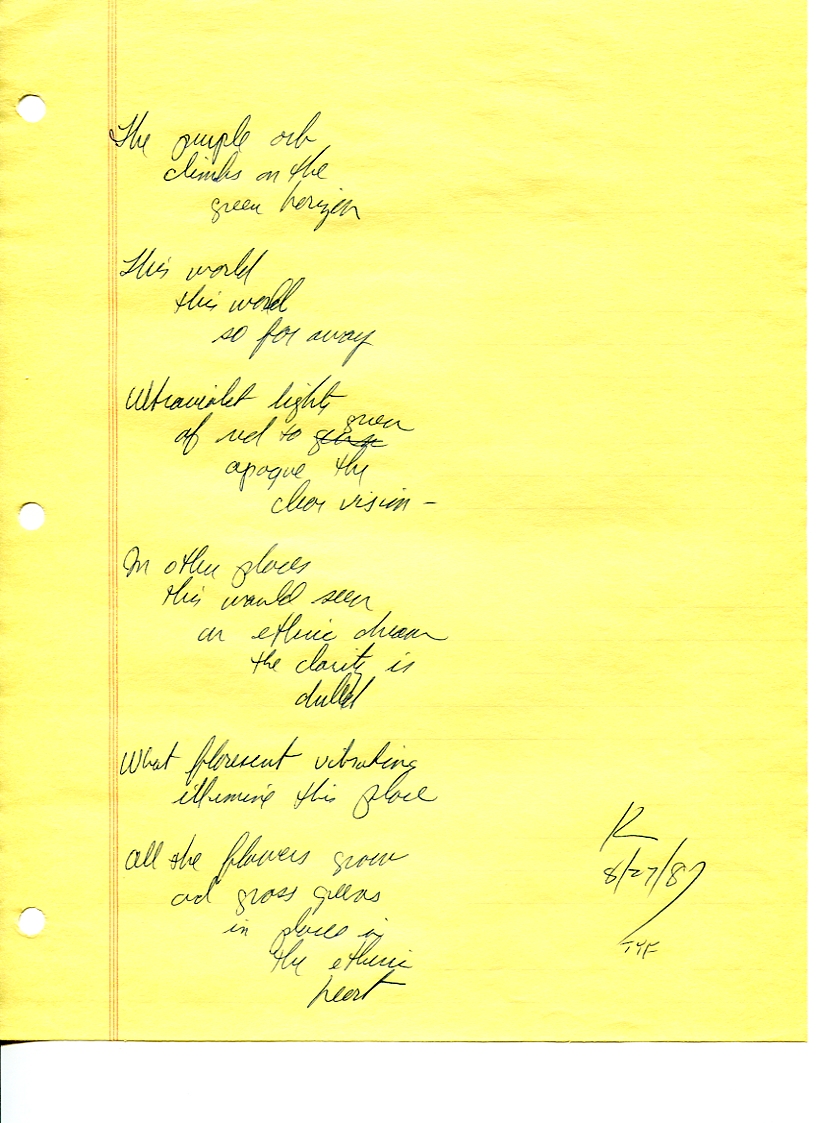 The purple orb
climbs on the
green horizon
This world
this world
so far away
Ultraviolet lights
of red to green
opaque the
clear vision –
In other places
this would seem
an etheric dream
the clarity is
dulled
What floresent vibrating
illumine this place
All the flowers grow
and grass greens
in places in
the etheric
heart
K
8/27/87